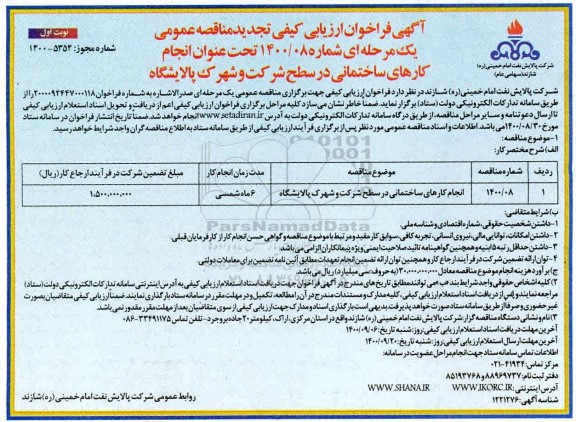 نوبت اول
آگهی فراخوان ارزیابی کیفی تجدید مناقصه عمومی
یک مرحله ای شماره ۱۴۰۰/۰۸ تحت عنوان انجام
کارهای ساختمانی در سطح شرکت و شهرک پالایشگاه
شماره مجوز: ۵۳۵۳-۱۴۰۰
شرکت پالایش نفت امام خمینی (ره)
شازند (سهامی عام)
شرکت پالایش نفت امام خمینی (ره) شازند در نظر دارد فراخوان ارزیابی کیفی جهت برگزاری مناقصه عمومی یک مرحله ای صدرالاشاره به شماره فراخوان ۲۰۰۰۰۹۲۴۴۷۰۰۰۱۱۸ را از
طریق سامانه تدارکات الکترونیکی دولت (ستاد) برگزار نماید. ضمنا خاطر نشان می سازد کلیه مراحل برگزاری فراخوان ارزیابی کیفی اعم از دریافت و تحویل اسناد استعلام ارزیابی کیفی
تا ارسال دعوتنامه و سایر مراحل مناقصه، از طریق درگاه سامانه تدارکات الکترونیکی دولت به آدرس www.setadiran.ir انجام خواهد شد. ضمنا تاریخ انتشار فراخوان در سامانه ستاد
مورخ ۱۴۰۰/۰۸/۳۰ می باشد. اطلاعات و اسناد مناقصه عمومی مورد نظر پس از برگزاری فرآیند ارزیابی کیفی از طریق سامانه ستاد به اطلاع مناقصه گران واجد شرایط خواهد رسید.
۱-موضوع مناقصه:
الف) شرح مختصر کار:
ردیف شماره مناقصه موضوع مناقصه مدت زمان انجام کار مبلغ تضمین شرکت در فرآیند ارجاع کار (ریال)
۱ ۱۴۰۰/۰۸ انجام کارهای ساختمانی در سطح شرکت و شهرک پالایشگاه ۶ ماه شمسی ۱,۵۰۰,۰۰۰,۰۰۰
ب) شرایط متقاضی:
۱-داشتن شخصیت حقوقی، شماره اقتصادی و شناسه ملی.
۲-داشتن امکانات، توانایی مالی، نیروی انسانی، تجربه کافی، سوابق کار مفید و مرتبط با موضوع مناقصه و گواهی حسن انجام کار از کارفرمایان قبلی.
۳-داشتن حداقل رتبه ۵ ابنیه و همچنین گواهینامه تائید صلاحیت ایمنی ویژه پیمانکاران الزامی می باشد.
۴-توان ارائه تضمین شرکت در فرآیند ارجاع کار و همچنین توان ارائه تضمین انجام تعهدات مطابق آئین نامه تضمین برای معاملات دولتی.
ج) برآورد هزینه انجام موضوع مناقصه معادل ۳۰,۰۰۰,۰۰۰,۰۰۰ (به حروف سی میلیارد) ریال می باشد.
۲) کلیه اشخاص حقوقی واجد شرایط بند ب می توانند مطابق تاریخ های مندرج در آگهی فراخوان جهت دریافت اسناد استعلام ارزیابی کیفی به آدرس اینترنتی سامانه تدارکات الکترونیکی دولت (ستاد)
مراجعه نمایند و پس از دریافت اسناد استعلام ارزیابی کیفی، کلیه مدارک و مستندات مندرج در آن را مطالعه، تکمیل و در مهلت مقرر در سامانه ستاد بارگذاری نمایند. ضمنا ارزیابی کیفی متقاضیان بصورت
غیر حضوری و صرفا از طریق سامانه ستاد صورت خواهد پذیرفت. بدیهی است بارگذاری اسناد و مدارک جهت ارزیابی کیفی از سوی متقاضیان بعد از مهلت مقرر مقدور نمی باشد.
۳) نام و نشانی دستگاه مناقصه گزار: شرکت پالایش نفت امام خمینی (ره) شازند واقع در استان مرکزی، اراک، کیلومتر ۲۰ جاده بروجرد- تلفن تماس ۳۳۴۹۱۱۷۵-۰۸۶
آخرین مهلت دریافت اسناد استعلام ارزیابی کیفی: روز: شنبه تاریخ: ۱۴۰۰/۰۹/۰۶
آخرین مهلت ارسال استعلام ارزیابی کیفی: روز: شنبه تاریخ: ۱۴۰۰/۰۹/۲۰
اطلاعات تماس سامانه ستاد جهت انجام مراحل عضویت در سامانه:
مرکز تماس: ۴۱۹۳۴-۰۲۱
دفتر ثبت نام: ۸۸۹۶۹۷۳۷ و ۸۵۱۹۳۷۶۸
آدرس اینترنتی: WWW.IKORC.IR WWW.SHANA.IR
شناسه آگهی: ۱۲۲۱۲۷۶
روابط عمومی شرکت پالایش نفت امام خمینی (ره) شازند